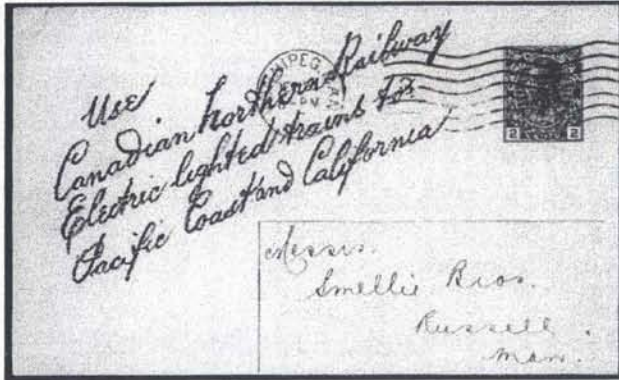 Use
Canadian Northern Railway
Electric lighted trains to
Pacific Coast and California
NIPEG
PM
2 2
Messrs.
Smellie Bros.
Russell.
Man.